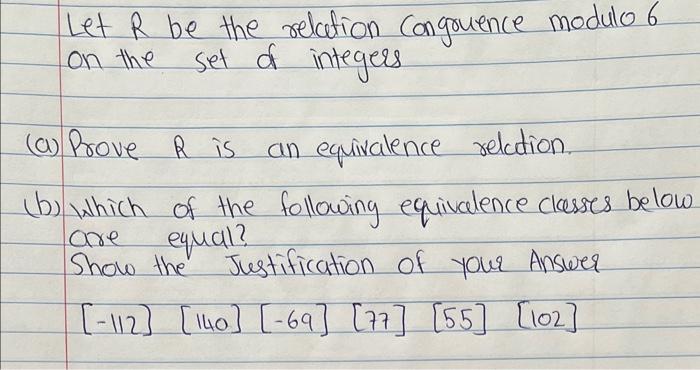 Let R be the relation Congruence modulo 6
on the set of integers
(a) Prove R is an equivalence relation.
(b) Which of the following equivalence classes below
are equal?
Show the Justification of your Answer
[-112] [140] [-69] [77] [55] [102]